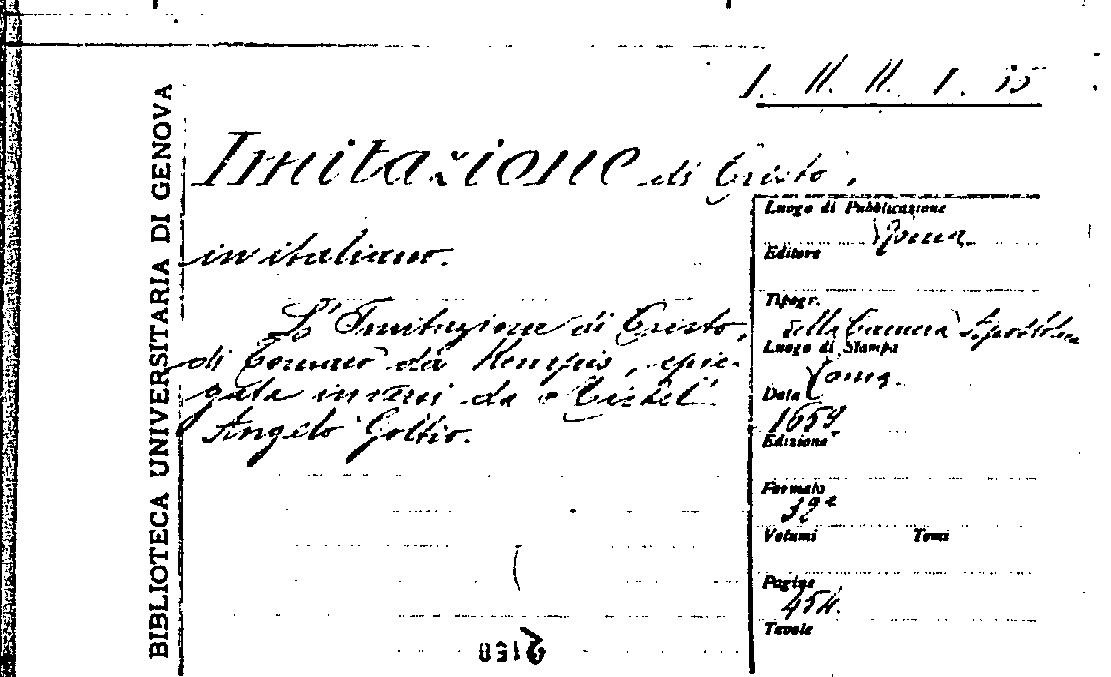 1. II. II. I. 35
BIBLIOTECA UNIVERSITARIA DI GENOVA
Imitazione di Cristo,
in italiano.
L'Imitazione di Cristo,
di Tomaso da Kempis, spie-
gata in versi da Michel
Angelo Goltio.
Luogo di Pubblicazione
Roma
Editore
Tipogr.
della Camera Apostolica
Luogo di Stampa
Roma
Data
1659
Edizione
Formato
32°
Volumi Tomi
Pagine
454.
Tavole